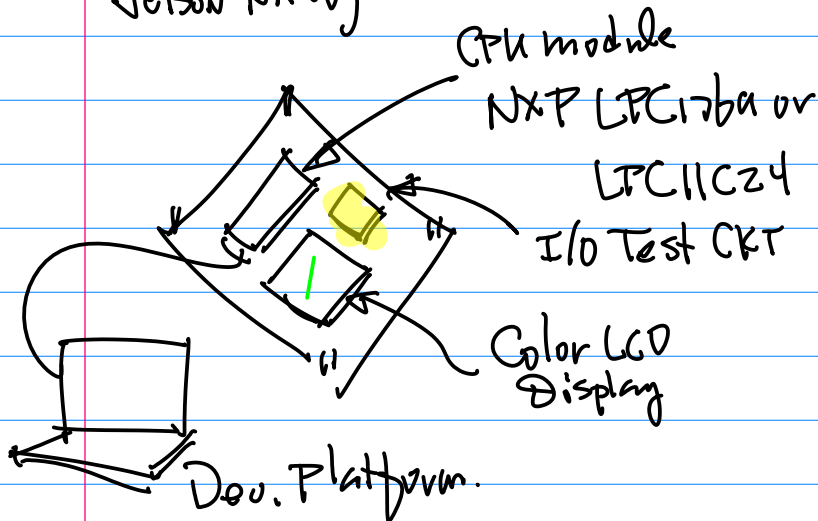 Jetson NANO
CPU module
NXP LPC1769 or
LPC11C24
I/O Test CKT
Color LCD
Display
Dev. Platform.